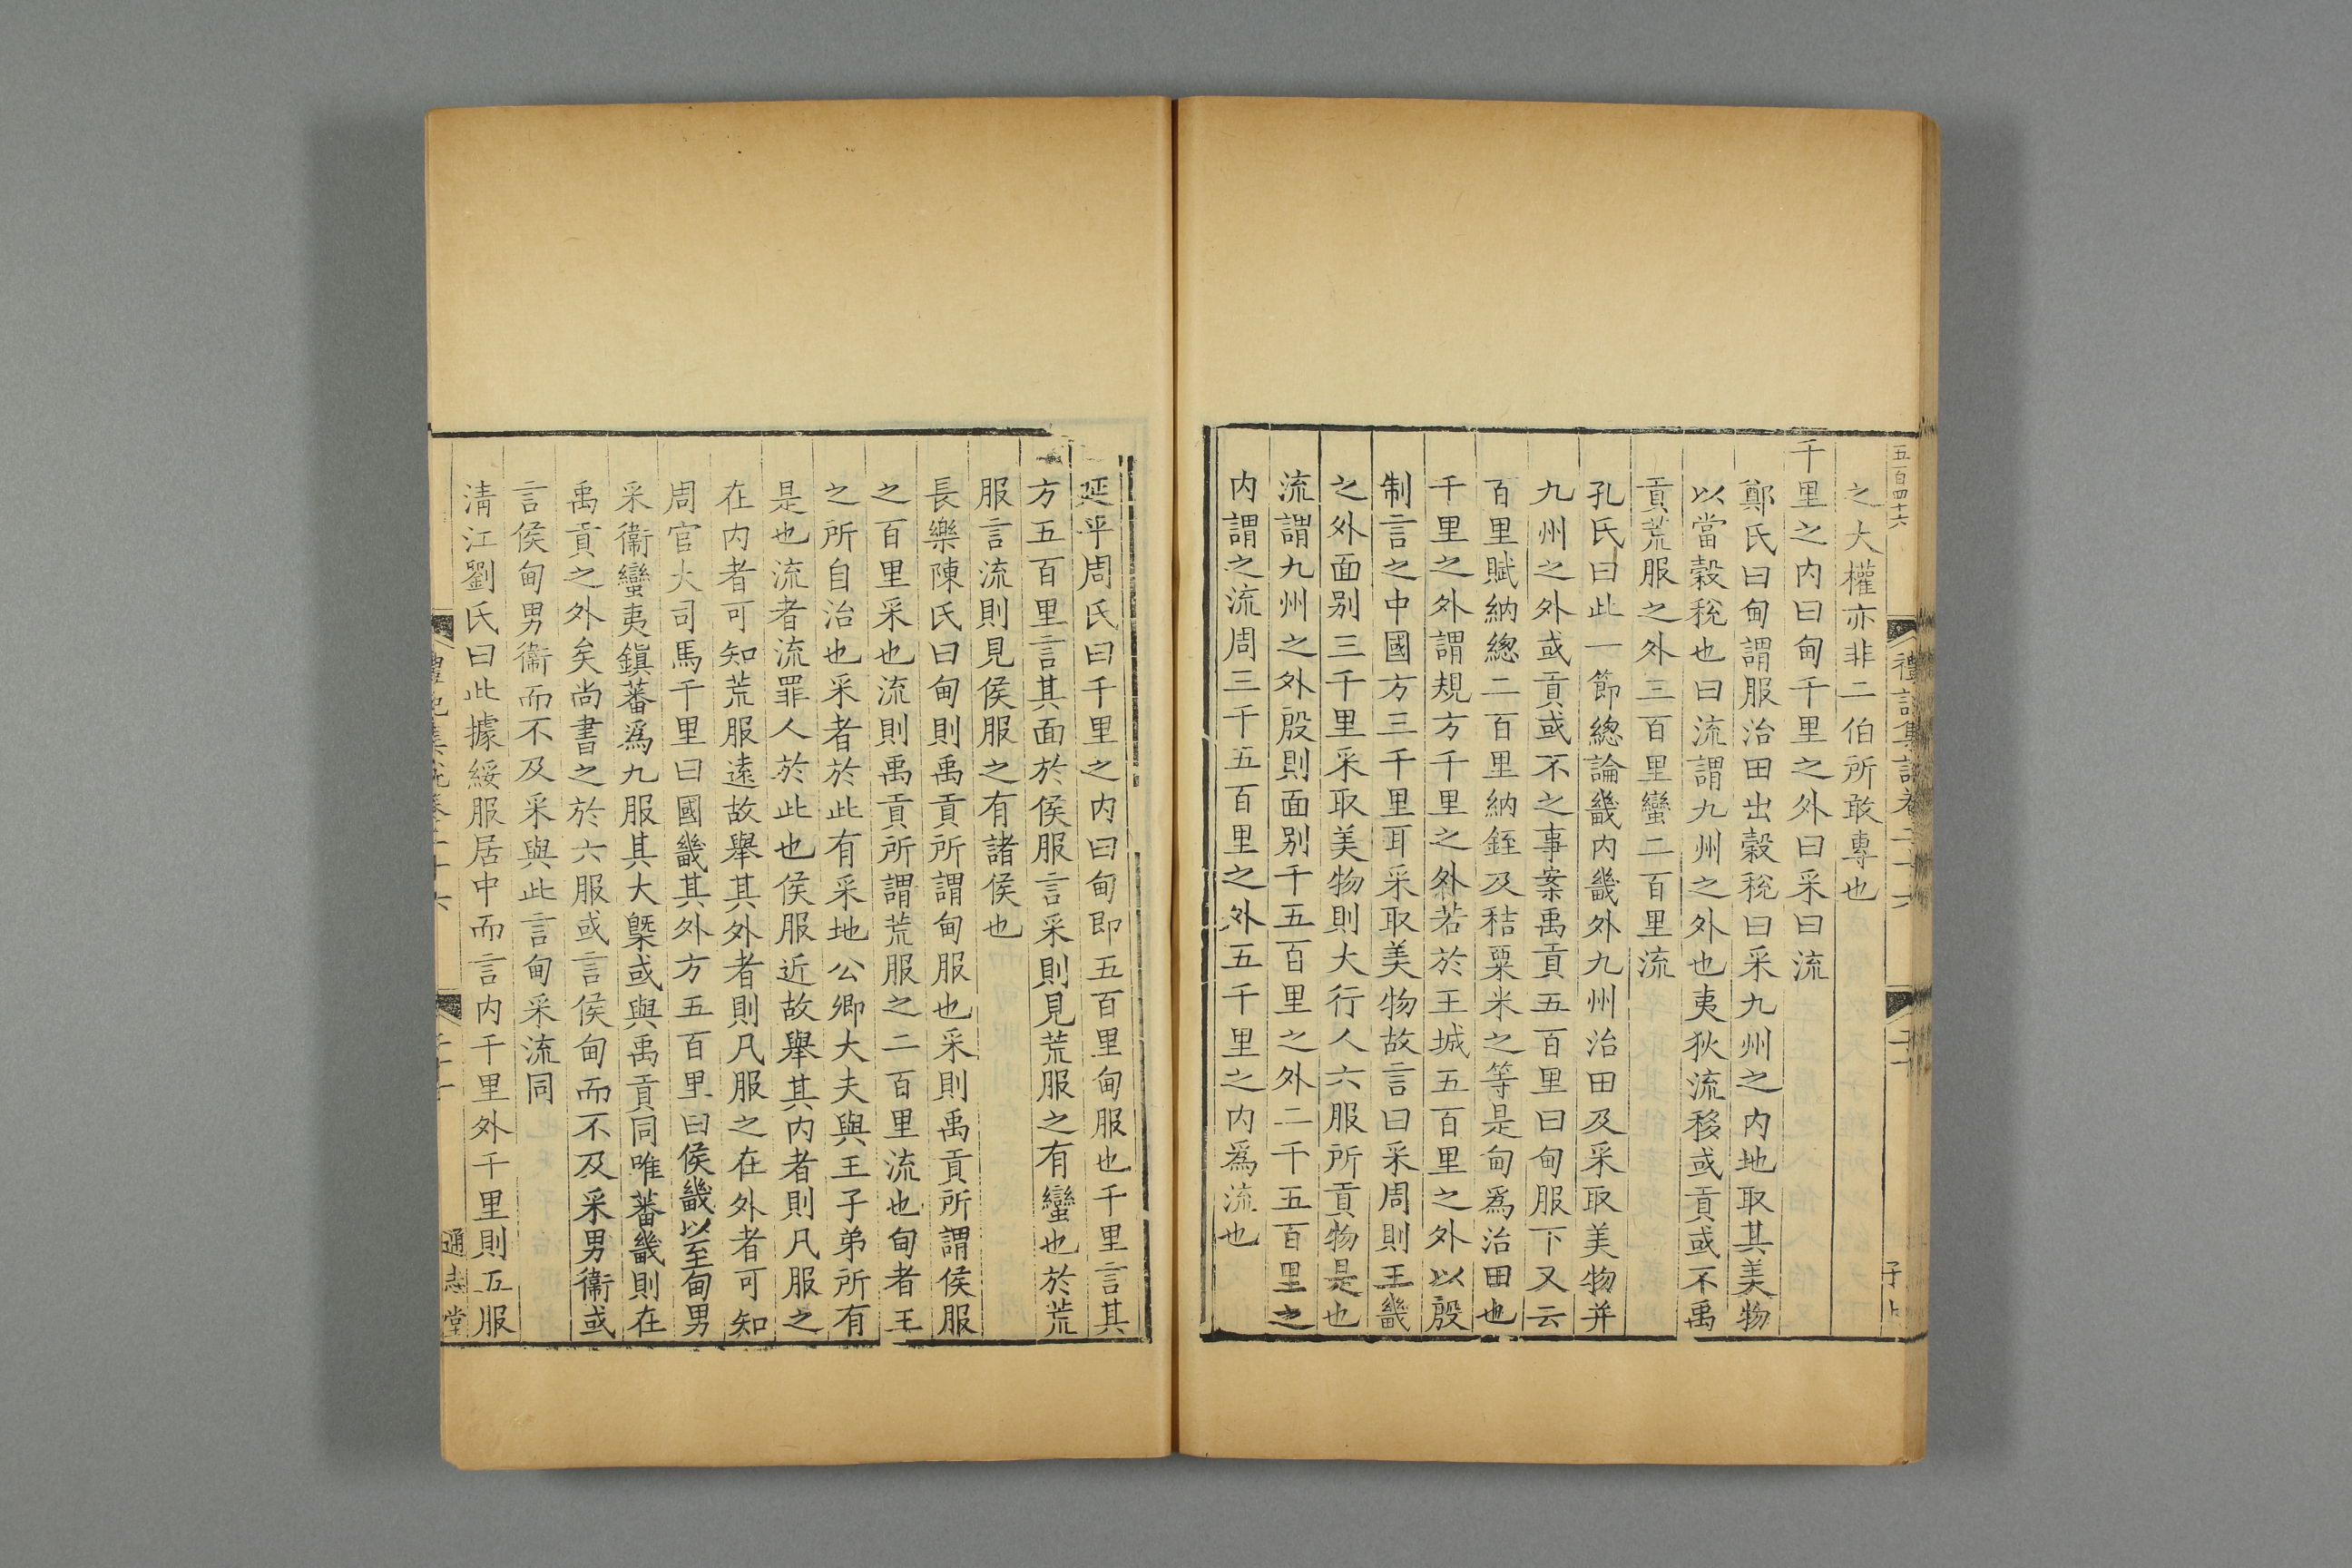 五百四十六
禮記集說卷二十六
之大權亦非二伯所敢專也
千里之内曰甸千里之外曰采曰流
鄭氏曰甸謂服治田出榖稅曰采九州之内地取其美物
以當榖稅也曰流謂九州之外也夷狄流移或貢或不禹
貢荒服之外三百里蠻二百里流
孔氏曰此一節緫論畿内畿外九州治田及采取美物并
九州之外或貢或不之事案禹貢五百里曰甸服下又云
百里賦納緫二百里納銍及秸粟米之等是甸爲治田也
千里之外謂規方千里之外若於王城五百里之外以殷
制言之中國方三千里耳采取美物故言曰采周則王畿
之外面别三千里采取美物則大行人六服所貢物是也
流謂九州之外殷則面别千五百里之外二千五百里之
内謂之流周三千五百里之外五千里之内爲流也
延平周氏曰千里之内曰甸即五百里甸服也千里言其
方五百里言其面於侯服言采則見荒服之有蠻也於荒
服言流則見侯服之有諸侯也
長樂陳氏曰甸則禹貢所謂甸服也采則禹貢所謂侯服
之百里采也流則禹貢所謂荒服之二百里流也甸者王
之所自治也采者於此有采地公卿大夫與王子弟所有
是也流者流罪人於此也侯服近故舉其内者則凡服之
在内者可知荒服遠故舉其外者則凡服之在外者可知
周官大司馬千里曰國畿其外方五百里曰侯畿以至甸男
采衞蠻夷鎮蕃爲九服其大槩或與禹貢同唯蕃畿則在
禹貢之外矣尚書之於六服或言侯甸而不及采男衞或
言侯甸男衞而不及采與此言甸采流同
清江劉氏曰此據綏服居中而言内千里外千里則五服
通志堂